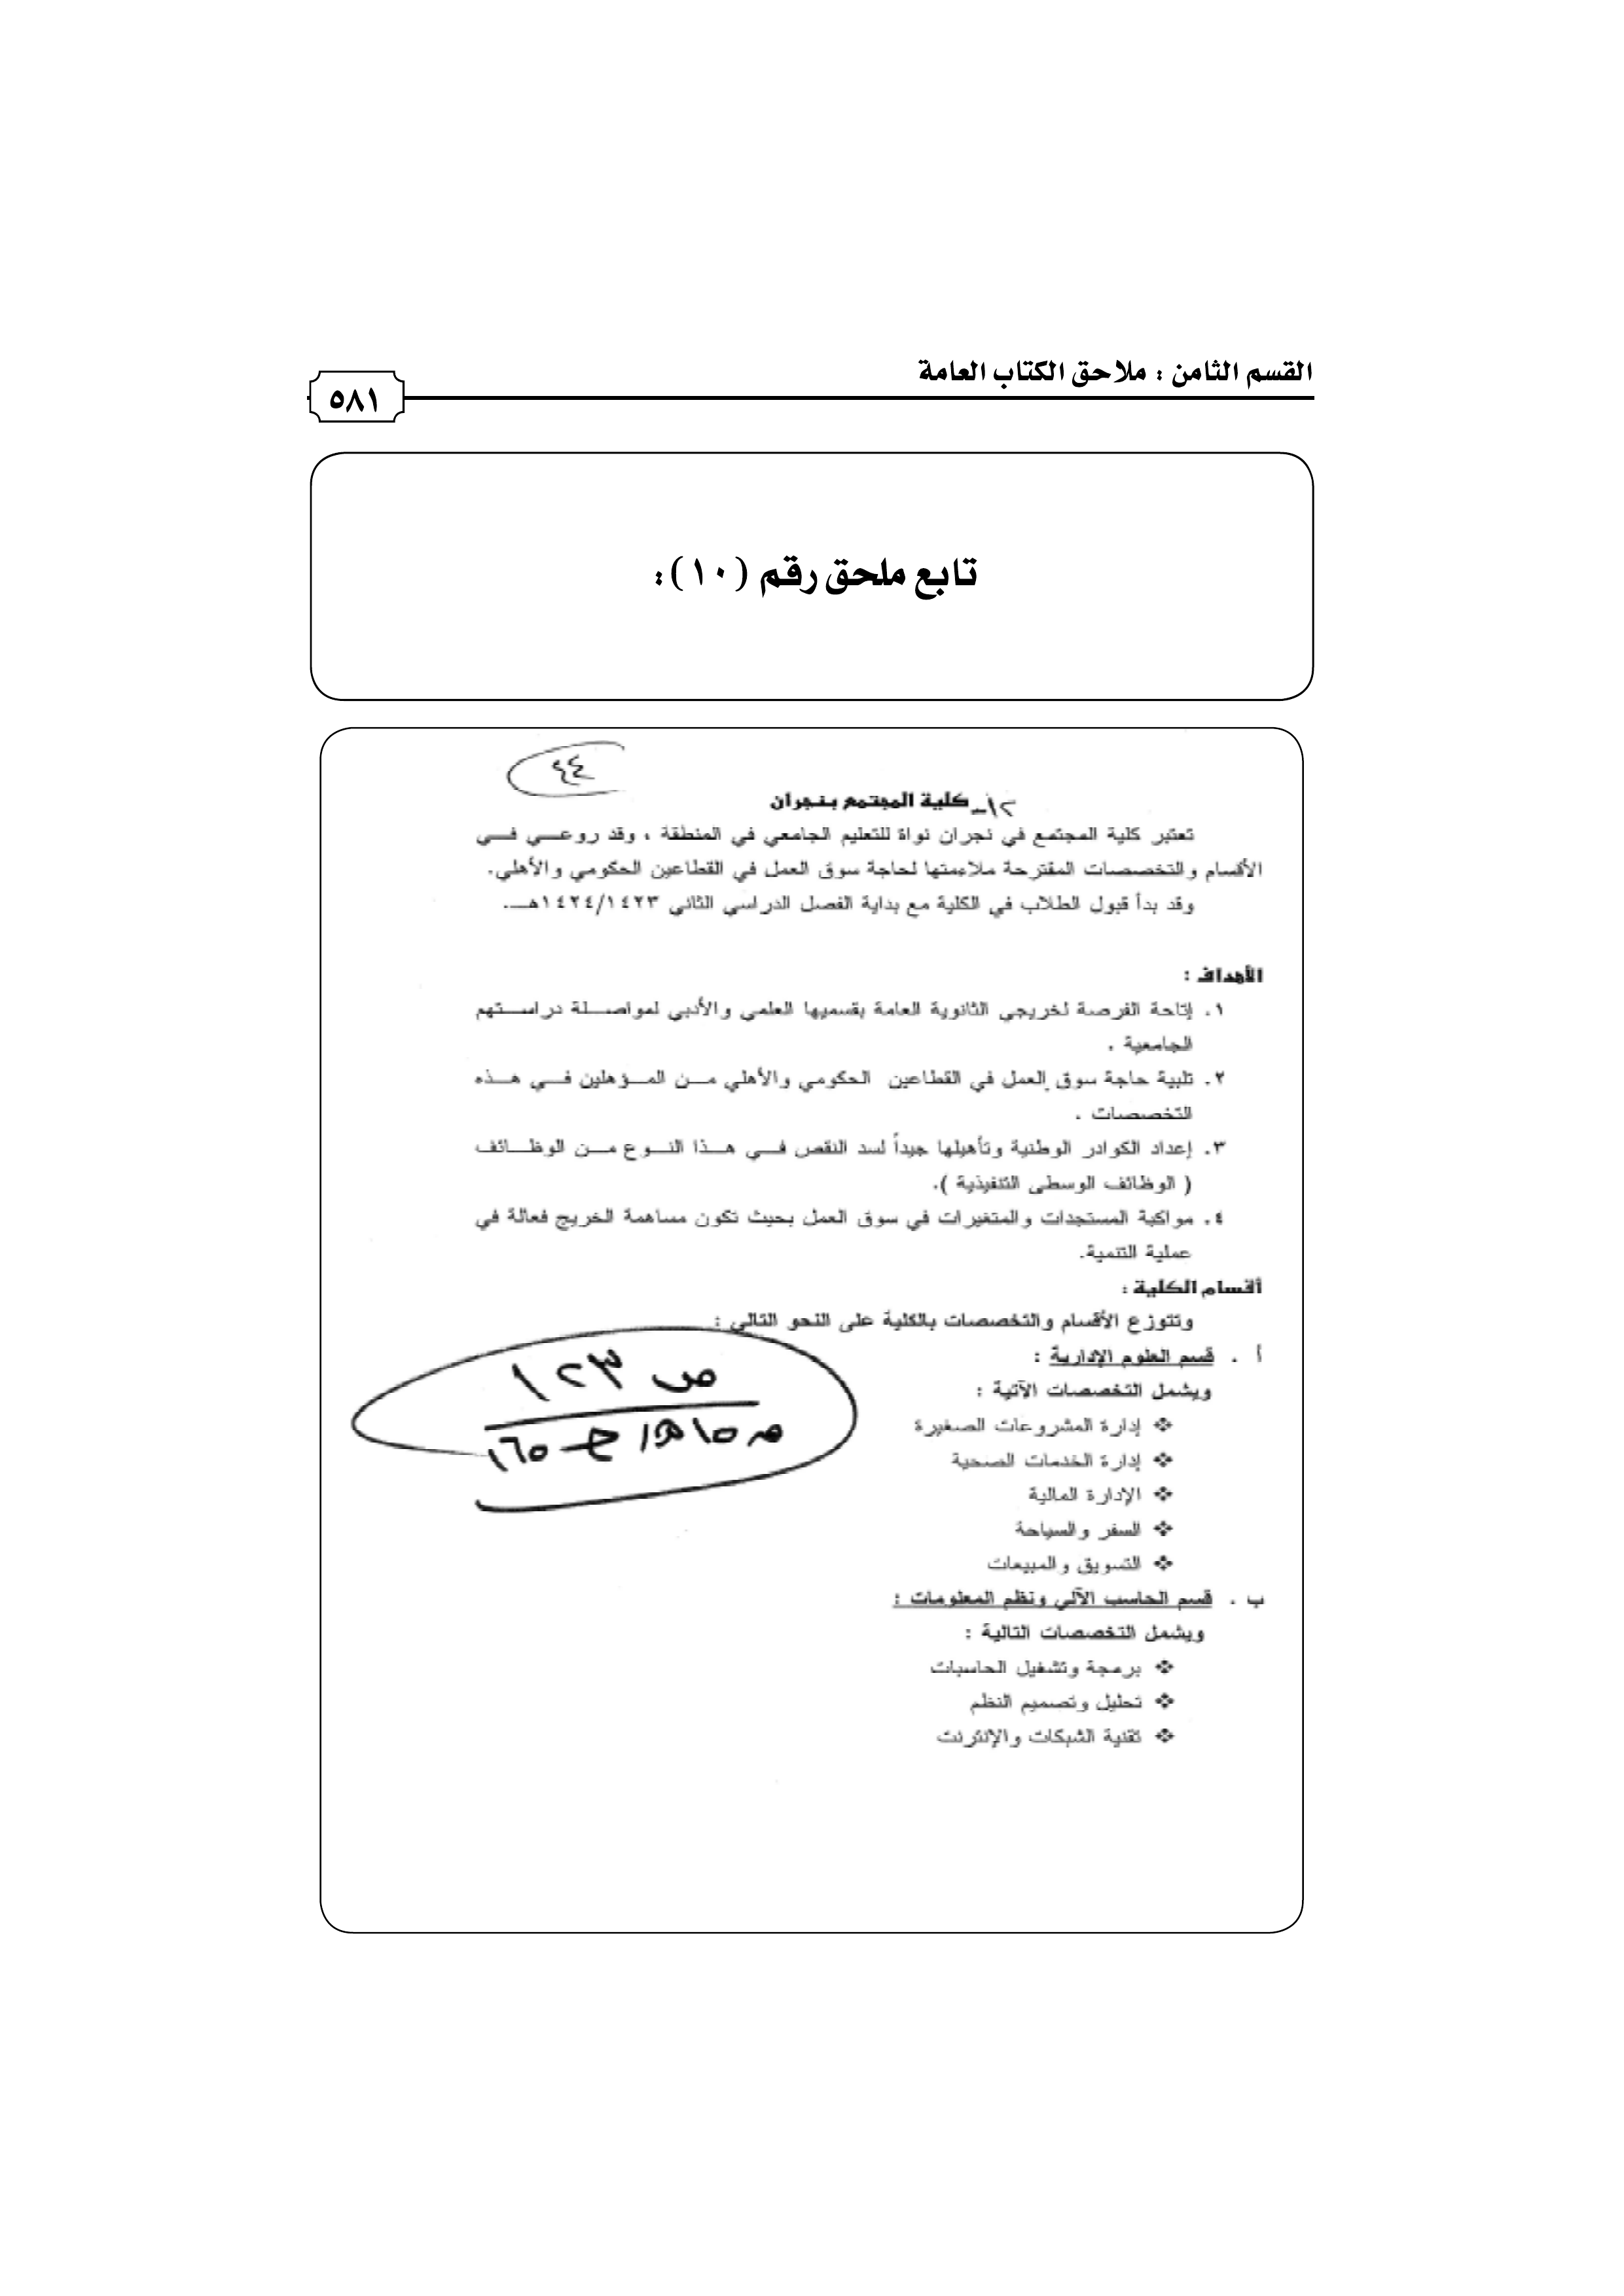 القسم الثامن : ملاحق الكتاب العامة
٥٨١
تابع ملحق رقم (١٠):
٤٤
١٢- كلية المجتمع بنجران
تعتبر كلية المجتمع في نجران نواة للتعليم الجامعي في المنطقة ، وقد روعي في
الأقسام والتخصصات المقترحة ملاءمتها لحاجة سوق العمل في القطاعين الحكومي والأهلي.
وقد بدأ قبول الطلاب في الكلية مع بداية الفصل الدراسي الثاني ١٤٢٤/١٤٢٣هـ.
الأهداف :
١. إتاحة الفرصة لخريجي الثانوية العامة بقسميها العلمي والأدبي لمواصلة دراستهم
الجامعية .
٢. تلبية حاجة سوق العمل في القطاعين الحكومي والأهلي من المؤهلين في هذه
التخصصات .
٣. إعداد الكوادر الوطنية وتأهيلها جيداً لسد النقص في هذا النوع من الوظائف
( الوظائف الوسطى التنفيذية ).
٤. مواكبة المستجدات والمتغيرات في سوق العمل بحيث تكون مساهمة الخريج فعالة في
عملية التنمية.
أقسام الكلية :
وتتوزع الأقسام والتخصصات بالكلية على النحو التالي :
أ . قسم العلوم الإدارية :
ويشمل التخصصات الآتية :
❖ إدارة المشروعات الصغيرة
❖ إدارة الخدمات الصحية
❖ الإدارة المالية
❖ السفر والسياحة
❖ التسويق والمبيعات
ص ١٢٣
ب . قسم الحاسب الآلي ونظم المعلومات :
ويشمل التخصصات التالية :
❖ برمجة وتشغيل الحاسبات
❖ تحليل وتصميم النظم
❖ تقنية الشبكات والإنترنت